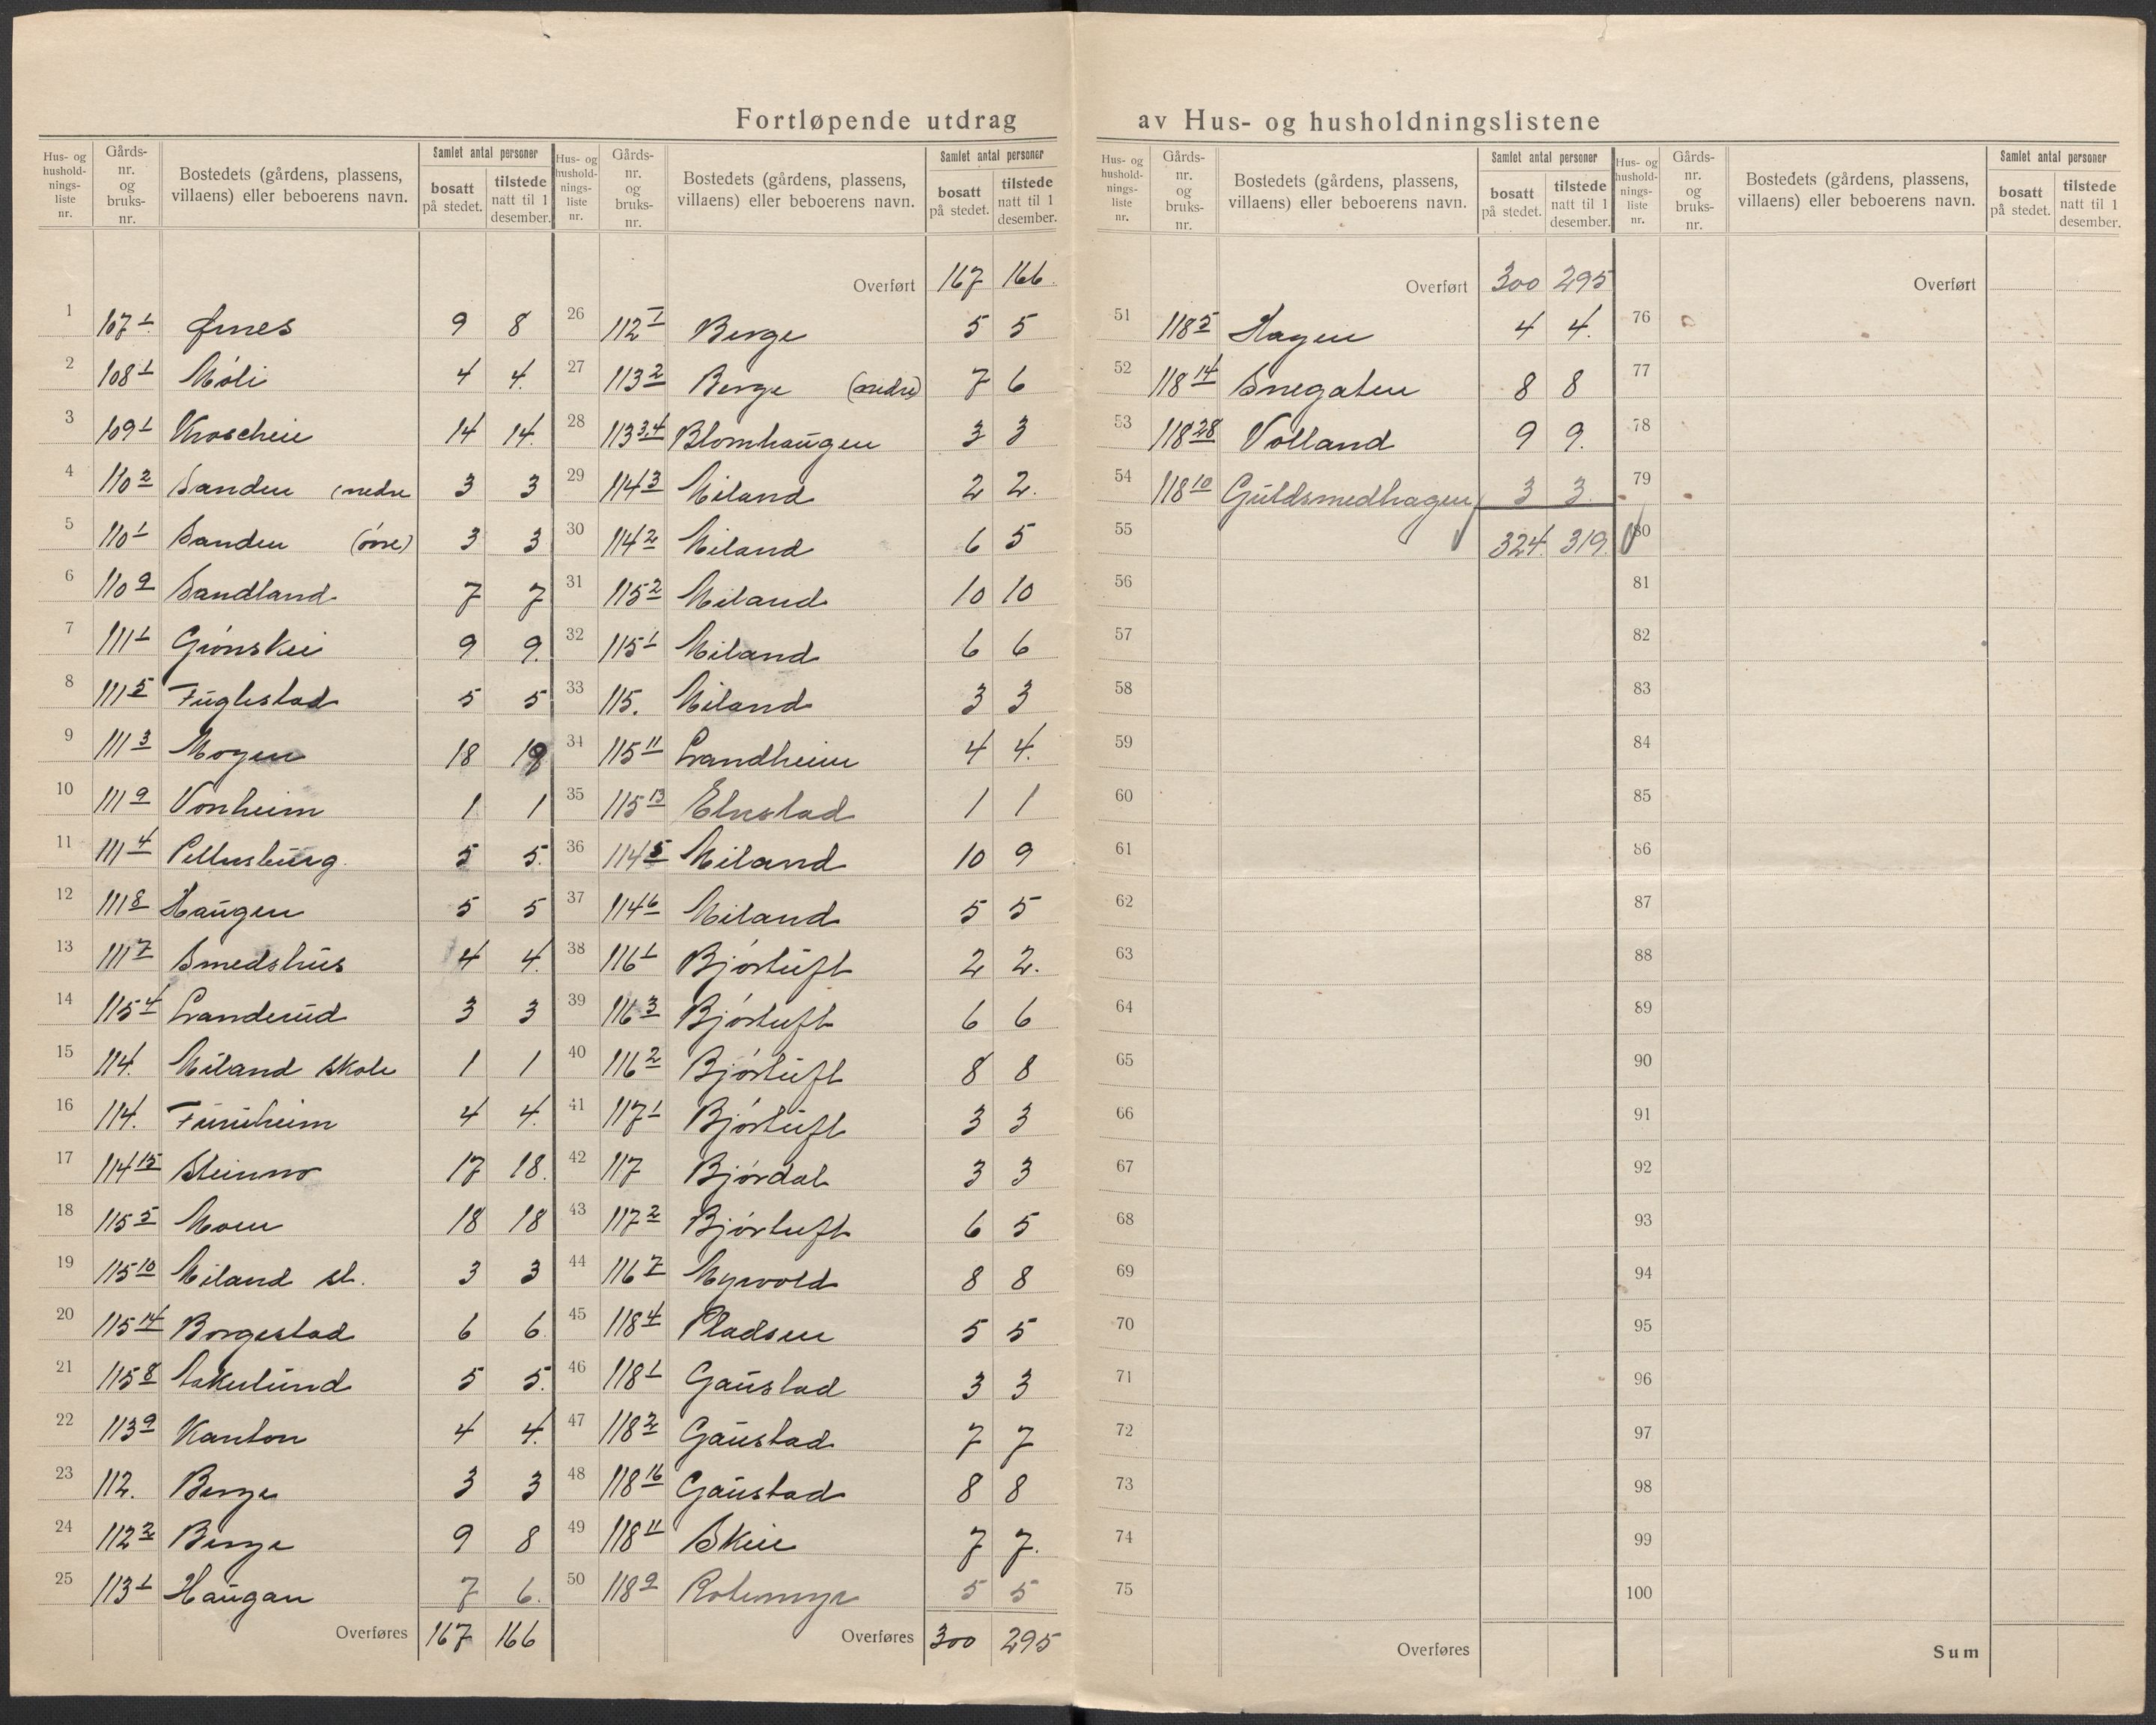 Fortløpende utdrag av Hus- og husholdningslistene
Hus- og husholdnings- liste nr. | Gårds- nr. og bruks- nr. | Bostedets (gårdens, plassens, villaens) eller beboerens navn. | Samlet antal personer | bosatt på stedet. | tilstede natt til 1 desember.
1 107 1 Ørnes 9 8
2 108 1 Møli 4 4.
3 109 1 Krosehein 14 14
4 110 2 Sanden (nedre 3 3
5 110 1 Sanden (øvre) 3 3
6 110 9 Sandland 7 7
7 111 1 Grönskei 9 9.
8 111 5 Fuglestad 5 5
9 111 3 Mogen 18 19
10 111 9 Vonheim 1 1
11 111 4 5 5.
12 111 8 Haugen 5 5
13 111 7 Smedshus 4 4.
14 115 4 Landerud 3 3
15 114. Miland skole 1 1
16 114. Furuheim 4 4.
17 114 15 Steinmo 17 18.
18 115 5 Moen 18 18
19 115 10 Miland st. 3 3
20 115 14 Borgestad 6 6.
21 115 8 5 5.
22 113 9 Kanton 4 4.
23 112. Berge 3 3
24 112 2 Berge 9 8
25 113 1 Haugan 7 6.
Overføres 167 166
Hus- og husholdnings- liste nr. | Gårds- nr. og bruks- nr. | Bostedets (gårdens, plassens, villaens) eller beboerens navn. | Samlet antal personer | bosatt på stedet. | tilstede natt til 1 desember.
Overført 167 166.
26 112 1 Berge 5 5
27 113 2 Berge (nedre) 7 6
28 113 3,4 Blomhaugen 3 3
29 114 3 Miland 2 2.
30 114 2 Miland 6 5
31 115 2 Miland 10 10
32 115 1 Miland 6 6
33 115. Miland 3 3
34 115 11 Landheim 4 4.
35 115 13 Elvestad 1 1
36 114 5 Miland 10 9
37 114 6 Miland 5 5
38 116 1 Bjørtuft 2 2.
39 116 3 Bjørtuft 6 6
40 116 2 Bjørtuft 8 8
41 117 1 Bjørtuft 3 3
42 117 Bjørdal 3 3
43 117 2 Bjørtuft 6 5
44 116 7 Myrvold 8 8
45 118 4 Pladsen 5 5
46 118 1 Gaustad 3 3
47 118 2 Gaustad 7 7
48 118 16 Gaustad 8 8
49 118 11 Skeie 7 7.
50 118 9 Rotemyr 5 5
Overføres 300 295
Hus- og husholdnings- liste nr. | Gårds- nr. og bruks- nr. | Bostedets (gårdens, plassens, villaens) eller beboerens navn. | Samlet antal personer | bosatt på stedet. | tilstede natt til 1 desember.
Overført 300 295
51 118 5 Hagen 4 4.
52 118 14 Snegaten 8 8
53 118 28 Volland 9 9.
54 118 10 Guldsmedhagen 3 3.
55 324. 319.
56
57
58
59
60
61
62
63
64
65
66
67
68
69
70
71
72
73
74
75
Overføres
Hus- og husholdnings- liste nr. | Gårds- nr. og bruks- nr. | Bostedets (gårdens, plassens, villaens) eller beboerens navn. | Samlet antal personer | bosatt på stedet. | tilstede natt til 1 desember.
Overført
76
77
78
79
80
81
82
83
84
85
86
87
88
89
90
91
92
93
94
95
96
97
98
99
100
Sum